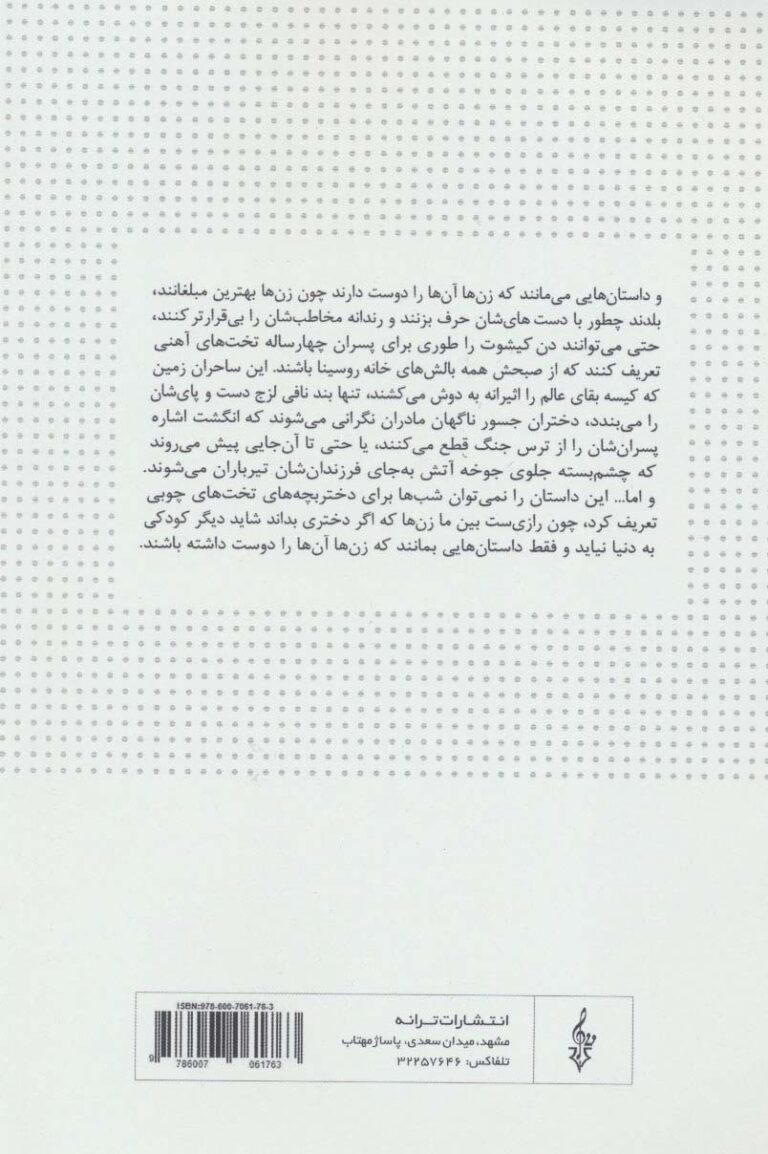 و داستان‌هایی می‌مانند که زن‌ها آن‌ها را دوست دارند چون زن‌ها بهترین مبلغانند،
بلدند چطور با دست های‌شان حرف بزنند و رندانه مخاطب‌شان را بی‌قرارتر کنند،
حتی می‌توانند دن کیشوت را طوری برای پسران چهارساله تخت‌های آهنی
تعریف کنند که از صبحش همه بالش‌های خانه روسینا باشند. این ساحران زمین
که کیسه بقای عالم را اثیرانه به دوش می‌کشند، تنها بند نافی لزج دست و پای‌شان
را می‌بندد، دختران جسور ناگهان مادران نگرانی می‌شوند که انگشت اشاره
پسران‌شان را از ترس جنگ قطع می‌کنند، یا حتی تا آن‌جایی پیش می‌روند
که چشم‌بسته جلوی جوخه آتش به‌جای فرزندان‌شان تیرباران می‌شوند.
و اما... این داستان را نمی‌توان شب‌ها برای دختربچه‌های تخت‌های چوبی
تعریف کرد، چون رازی‌ست بین ما زن‌ها که اگر دختری بداند شاید دیگر کودکی
به دنیا نیاید و فقط داستان‌هایی بمانند که زن‌ها آن‌ها را دوست داشته باشند.
انتشارات ترانه
مشهد، میدان سعدی، پاساژ مهتاب
تلفاکس: ۳۲۲۵۷۶۴۶
ISBN:978-600-7061-76-3
9 786007 061763